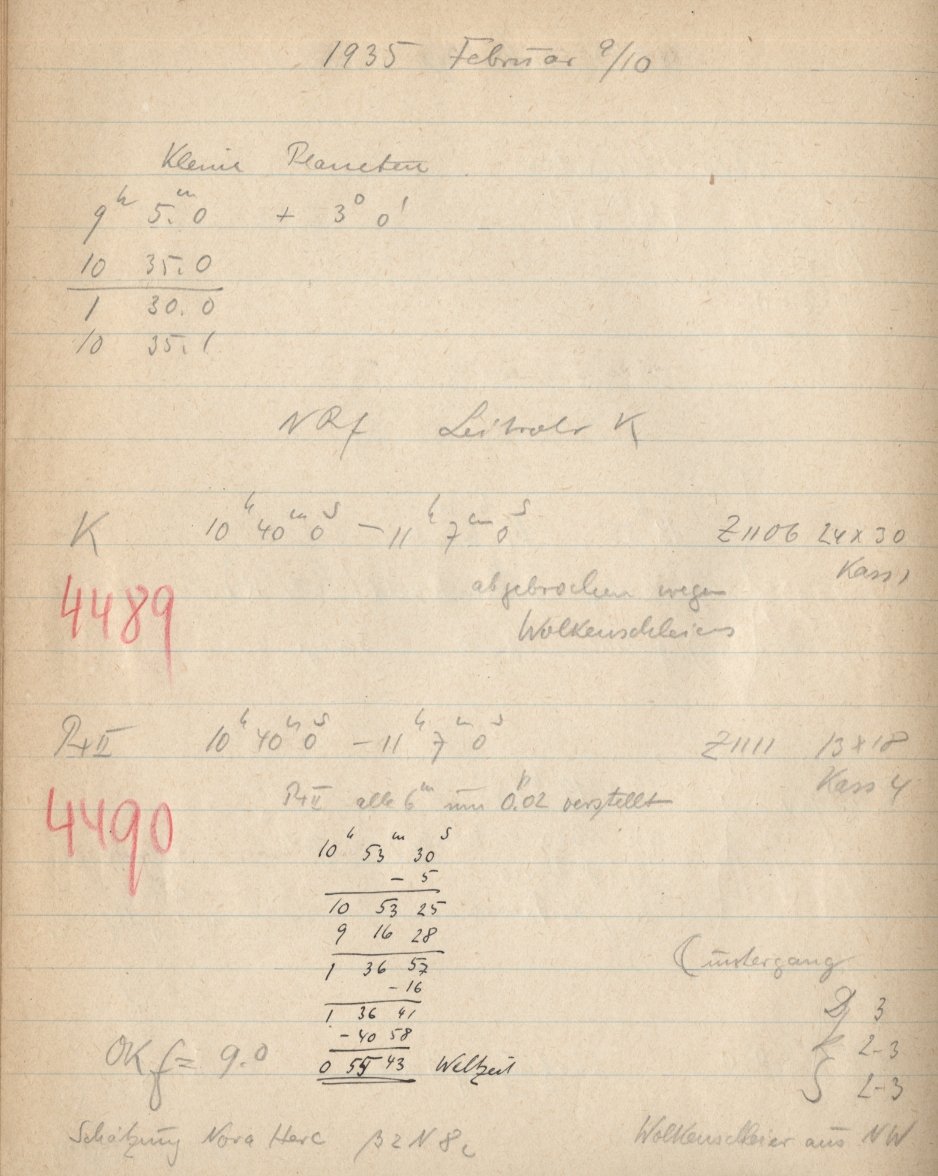 1935 Februar 9/10
Kleine Planeten
9ʰ 5.ᵐ0 + 3° 0'
10 35.0
1 30.0
10 35.1
NRf Leitrohr K
K 10ʰ40ᵐ0ˢ – 11ʰ7ᵐ0ˢ Z1106 24x30
Kass 1
4489 abgebrochen wegen
Wolkenschleiers
10ʰ40ᵐ0ˢ – 11ʰ7ᵐ0ˢ Z1111 13x18
Kass 4
4490 alle 6ᵐ um 0.02 verstellt
10ʰ 53ᵐ 30ˢ
– 5
10 53 25
9 16 28
1 36 57
– 16
1 36 41
– 40 58
0 55 43 Weltzeit
(untergang
3
2-3
2-3
OK f = 9.0
Schätzung Nova Herc β2N8
Wolkenschleier aus NW